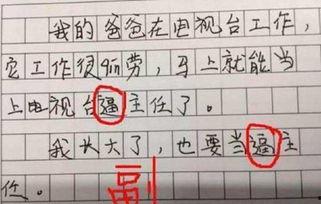 我的爸爸在电视台工作，
它工作很辛劳，马上就能当
上电视台逼主任了。
我长大了，也要当逼主
任。
副